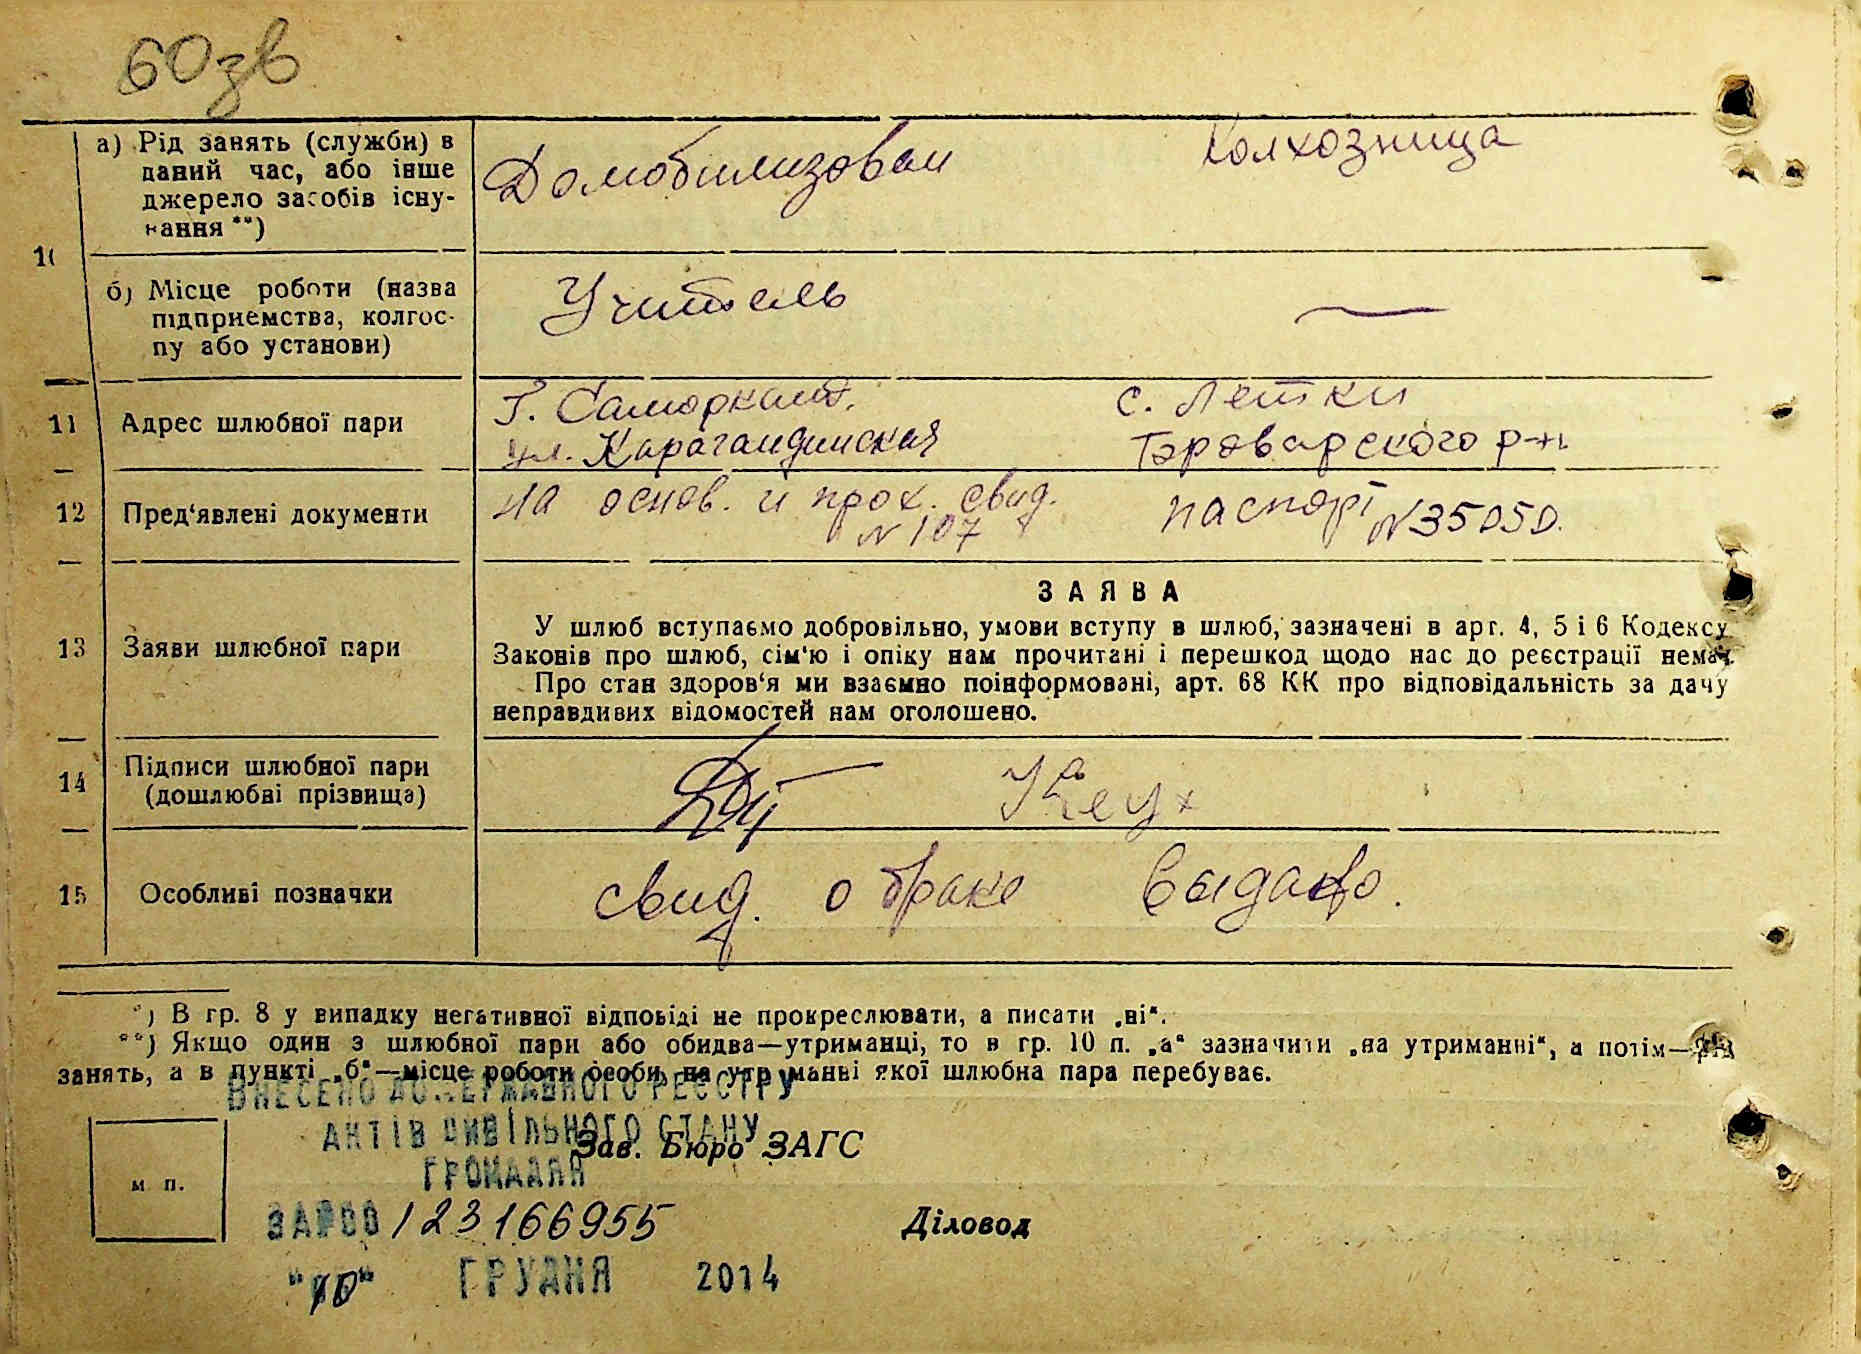 60зв
а) Рід занять (служби) в
даний час, або інше
джерело засобів існу-
вання **)
Домобилизован
Колхозница
10
б) Місце роботи (назва
підприємства, колгос-
пу або установи)
Учитель
—
11
Адрес шлюбної пари
Г. Самарканд,
ул. Карагандинская
с. Летки
р-н
12
Пред'явлені документи
на основ. и прох. свид.
N 107
паспорт N 35050.
13
Заяви шлюбної пари
ЗАЯВА
У шлюб вступаємо добровільно, умови вступу в шлюб, зазначені в арт. 4, 5 і 6 Кодексу
Законів про шлюб, сім'ю і опіку нам прочитані і перешкод щодо нас до реєстрації немає.
Про стан здоров'я ми взаємно поінформовані, арт. 68 КК про відповідальність за дачу
неправдивих відомостей нам оголошено.
14
Підписи шлюбної пари
(дошлюбні прізвища)
15
Особливі позначки
свид. о браке выдано.
*) В гр. 8 у випадку негативної відповіді не прокреслювати, а писати „ні“.
**) Якщо один з шлюбної пари або обидва—утриманці, то в гр. 10 п. „а“ зазначити „на утриманні“, а потім—рід
занять, а в пункті „б“—місце роботи особи, на утриманні якої шлюбна пара перебуває.
ВНЕСЕНО ДО ДЕРЖАВНОГО РЕЄСТРУ
АКТІВ ЦИВІЛЬНОГО СТАНУ
ГРОМАДЯН
Зав. Бюро ЗАГС
м. п.
ЗА №00123166955
Діловод
"10" ГРУДНЯ 2014